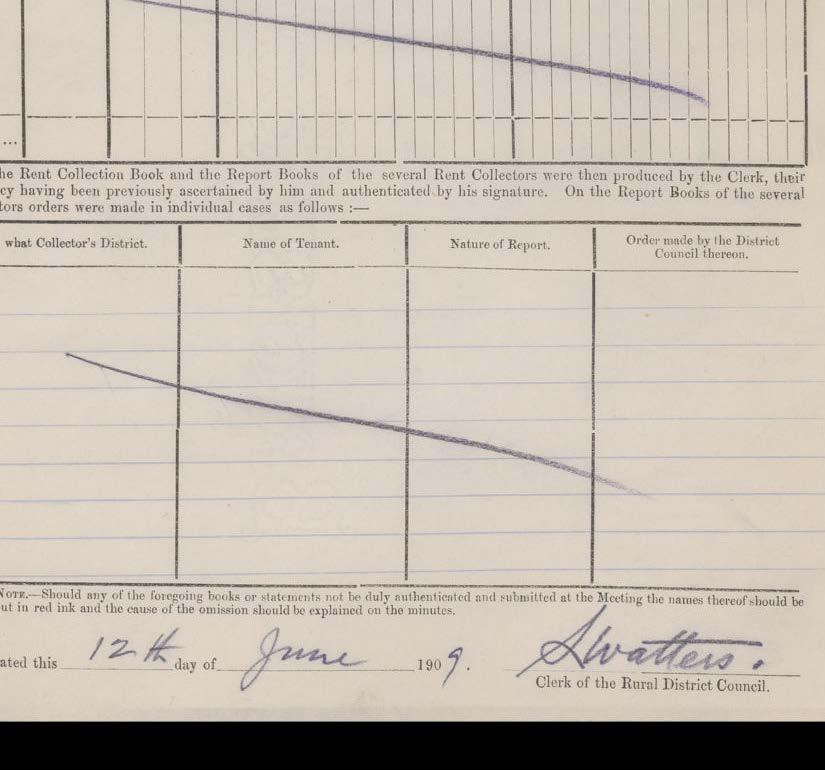 ...
he Rent Collection Book and the Report Books of the several Rent Collectors were then produced by the Clerk, their
cy having been previously ascertained by him and authenticated by his signature. On the Report Books of the several
tors orders were made in individual cases as follows :—
what Collector's District. Name of Tenant. Nature of Report. Order made by the District
Council thereon.
NOTE.—Should any of the foregoing books or statements not be duly authenticated and submitted at the Meeting the names thereof should be
ut in red ink and the cause of the omission should be explained on the minutes.
ated this 12th day of June 1909. SWatters.
Clerk of the Rural District Council.